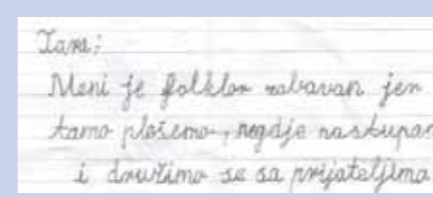 Tara:
Meni je folklor zabavan jer
tamo plešemo, negdje nastupam
i družimo se sa prijateljima